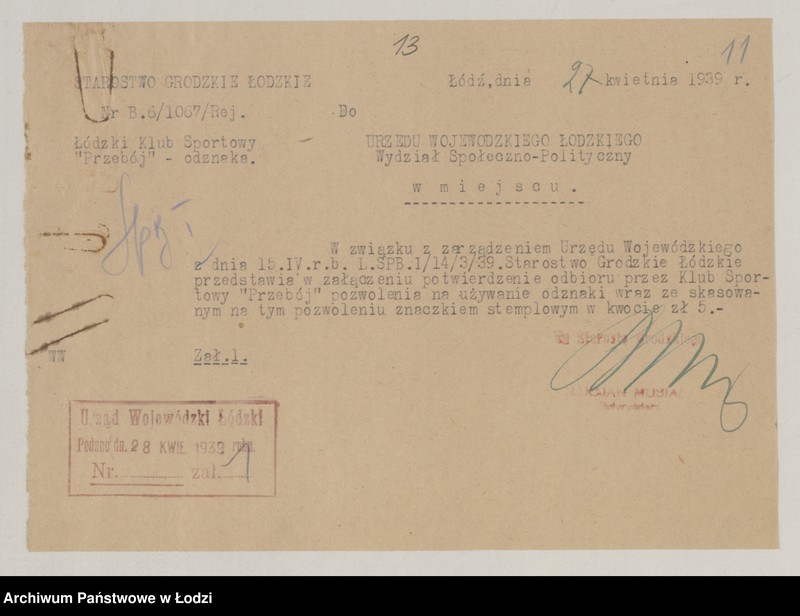 13
11
STAROSTWO GRODZKIE ŁODZKIE
Łódź, dnia 27 kwietnia 1939 r.
Nr B.6/1067/Rej.
Do
Łódzki Klub Sportowy
"Przebój" - odznaka.
URZĘDU WOJEWODZKIEGO ŁODZKIEGO
Wydział Społeczno-Polityczny
w miejscu.
W związku z zarządzeniem Urzędu Wojewódzkiego
z dnia 15.IV.r.b. L.SPB.1/14/3/39.Starostwo Grodzkie Łódzkie
przedstawia w załączeniu potwierdzenie odbioru przez Klub Spor-
towy "Przebój" pozwolenia na używanie odznaki wraz ze skasowa-
nym na tym pozwoleniu znaczkiem stemplowym w kwocie zł 5.-
Starosty Grodzkiego
WW
Zał.1.
MUSIAŁ
Urząd Wojewódzki Łódzki
Podano dn. 28 KWIE 1939 roku.
Nr. zał. 1
Archiwum Państwowe w Łodzi